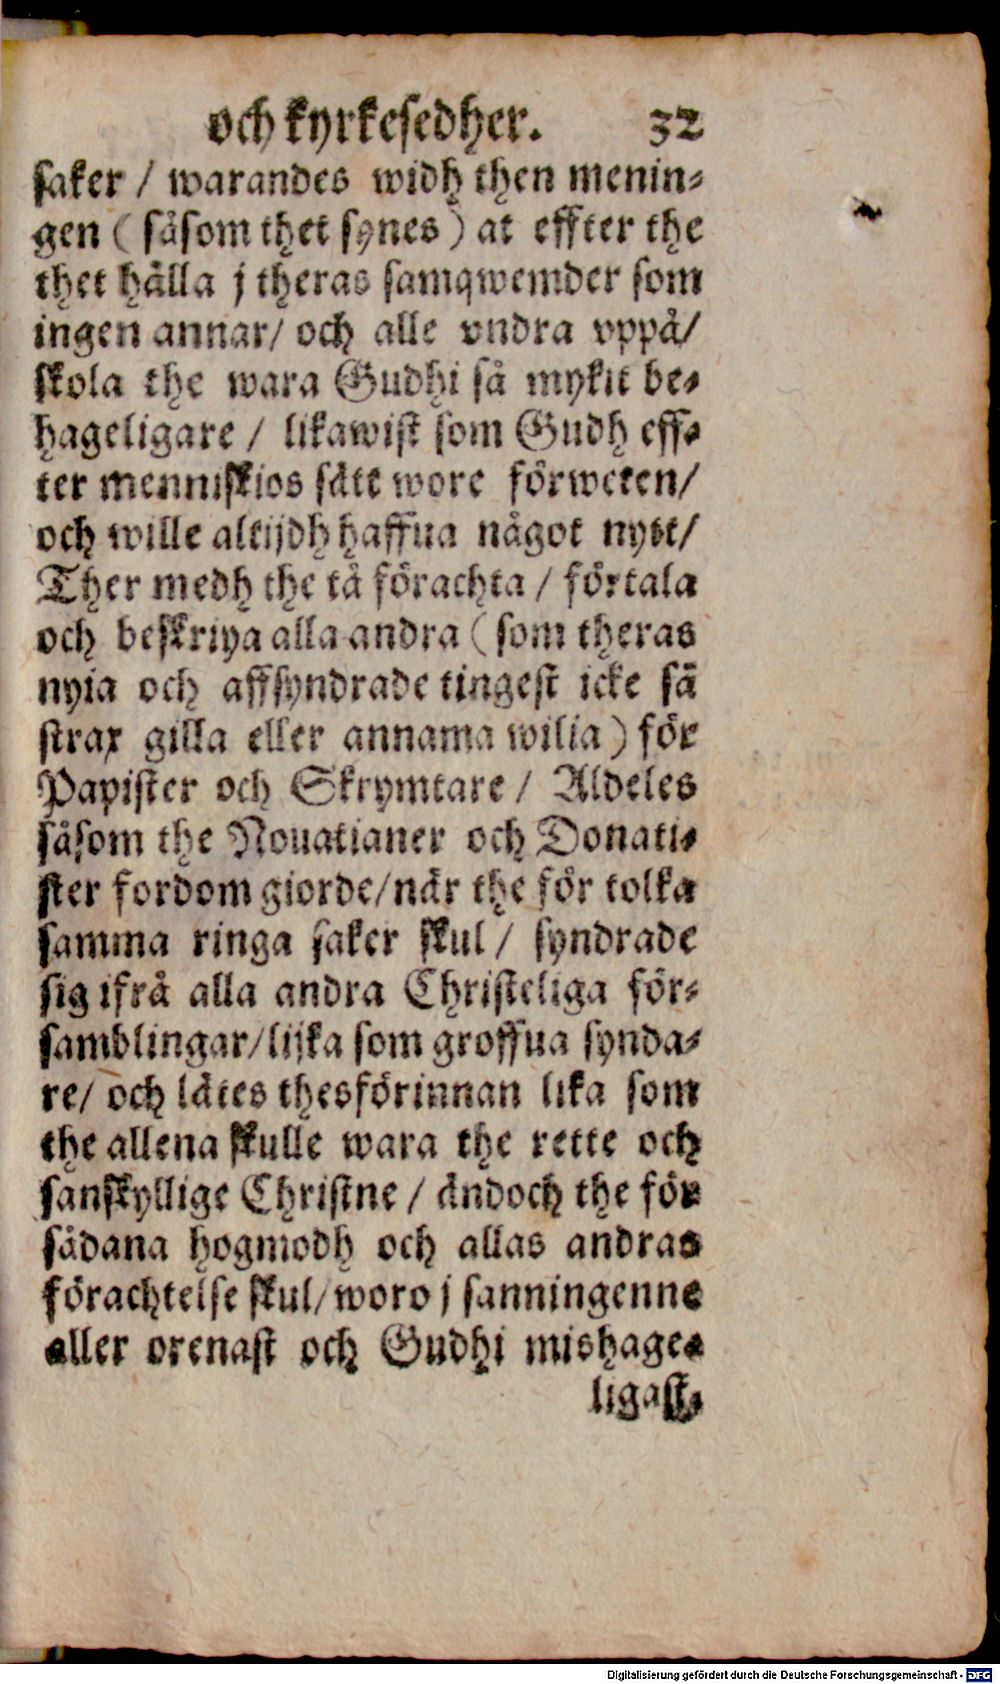 och kyrkesedher. 32
saker / warandes widh then menin-
gen ( såsom thet synes ) at effter the
thet hålla j theras samqwemder som
ingen annar / och alle vndra vppå /
skola the wara Gudhi så mykit be-
hageligare / likawist som Gudh eff-
ter menniskios sätt wore förweten /
och wille altijdh haffua något nytt /
Ther medh the tå förachta / förtala
och beskriya alla andra ( som theras
nyia och affsyndrade tingest icke så
strax gilla eller annama wilia ) för
Papister och Skrymtare / Aldeles
såsom the Nouatianer och Donati-
ster fordom giorde / när the för tolka
samma ringa saker skul / syndrade
sig ifrå alla andra Christeliga för-
samblingar / lijka som groffua synda-
re / och lätes thesförinnan lika som
the allena skulle wara the rette och
sanskyllige Christne / ändoch the för
sådana hogmodh och allas andras
förachtelse skul / woro j sanningenne
aller orenast och Gudhi mishage-
ligast,
Digitalisierung gefördert durch die Deutsche Forschungsgemeinschaft - DFG